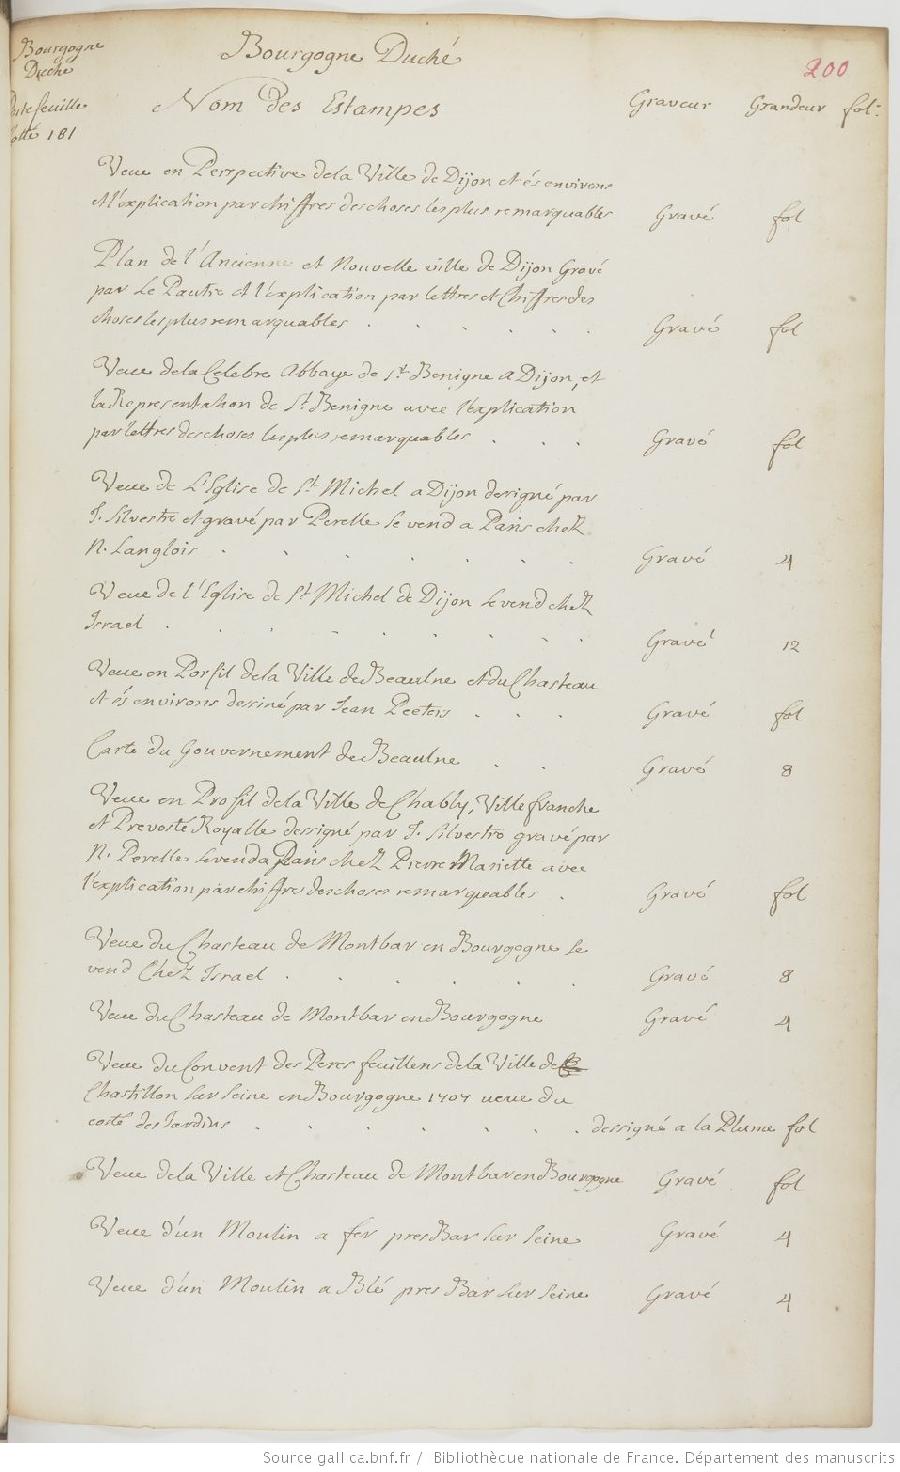 Bourgogne Duché
200
Bourgogne
Duché
Portefeuille
cotté 181
Nom des Estampes Graveur Grandeur fol:
Veue en Perspective dela Ville de Dijon et és environs
et l'explication par chiffres des choses les plus remarquables Gravé fol
Plan de l'Ancienne et Nouvelle ville de Dijon Gravé
par Le Pautre et l'explication par lettres et Chiffres des
choses les plus remarquables . . . . . Gravé fol
Veue dela Celebre Abbaye de St Benigne a Dijon, et
la Representation de St Benigne avec l'explication
par lettres des choses les plus remarquables . . . Gravé fol
Veue de L'Eglise de St Michel a Dijon dessigné par
J. Silvestre et gravé par Perelle se vend a Paris chez
N. Langlois . . . . . . . Gravé 4
Veue de l'Eglise de St Michel de Dijon se vend chez
Israel . . . . . . . . Gravé 12
Veue en Porfil dela Ville de Beaulne et du Chasteau
et és environs dessiné par Jean Peeters . . . Gravé fol
Carte du Gouvernement de Beaulne . . Gravé 8
Veue en Profil dela Ville de Chably, Ville franche
et Prevosté Royalle dessigné par J. Silvestre gravé par
N. Perelle se vend a Paris chez Pierre Mariette avec
l'explication par chiffres des choses remarquables . Gravé fol
Veue du Chasteau de Montbar en Bourgogne se
vend Chez Israel . . . . . . Gravé 8
Veue du Chasteau de Montbar en Bourgogne Gravé 4
Veue du Convent des Peres feuillens dela Ville de
Chastillon sur seine en Bourgogne 1707 veue du
costé des Jardins . . . . . . . dessigné a la Plume fol
Veue dela Ville et Chasteau de Montbar en Bourgogne Gravé fol
Veue d'un Moulin a fer pres Bar sur seine Gravé 4
Veue d'un Moulin a Blé pres Bar sur seine Gravé 4
Source gallica.bnf.fr / Bibliothèque nationale de France. Département des manuscrits